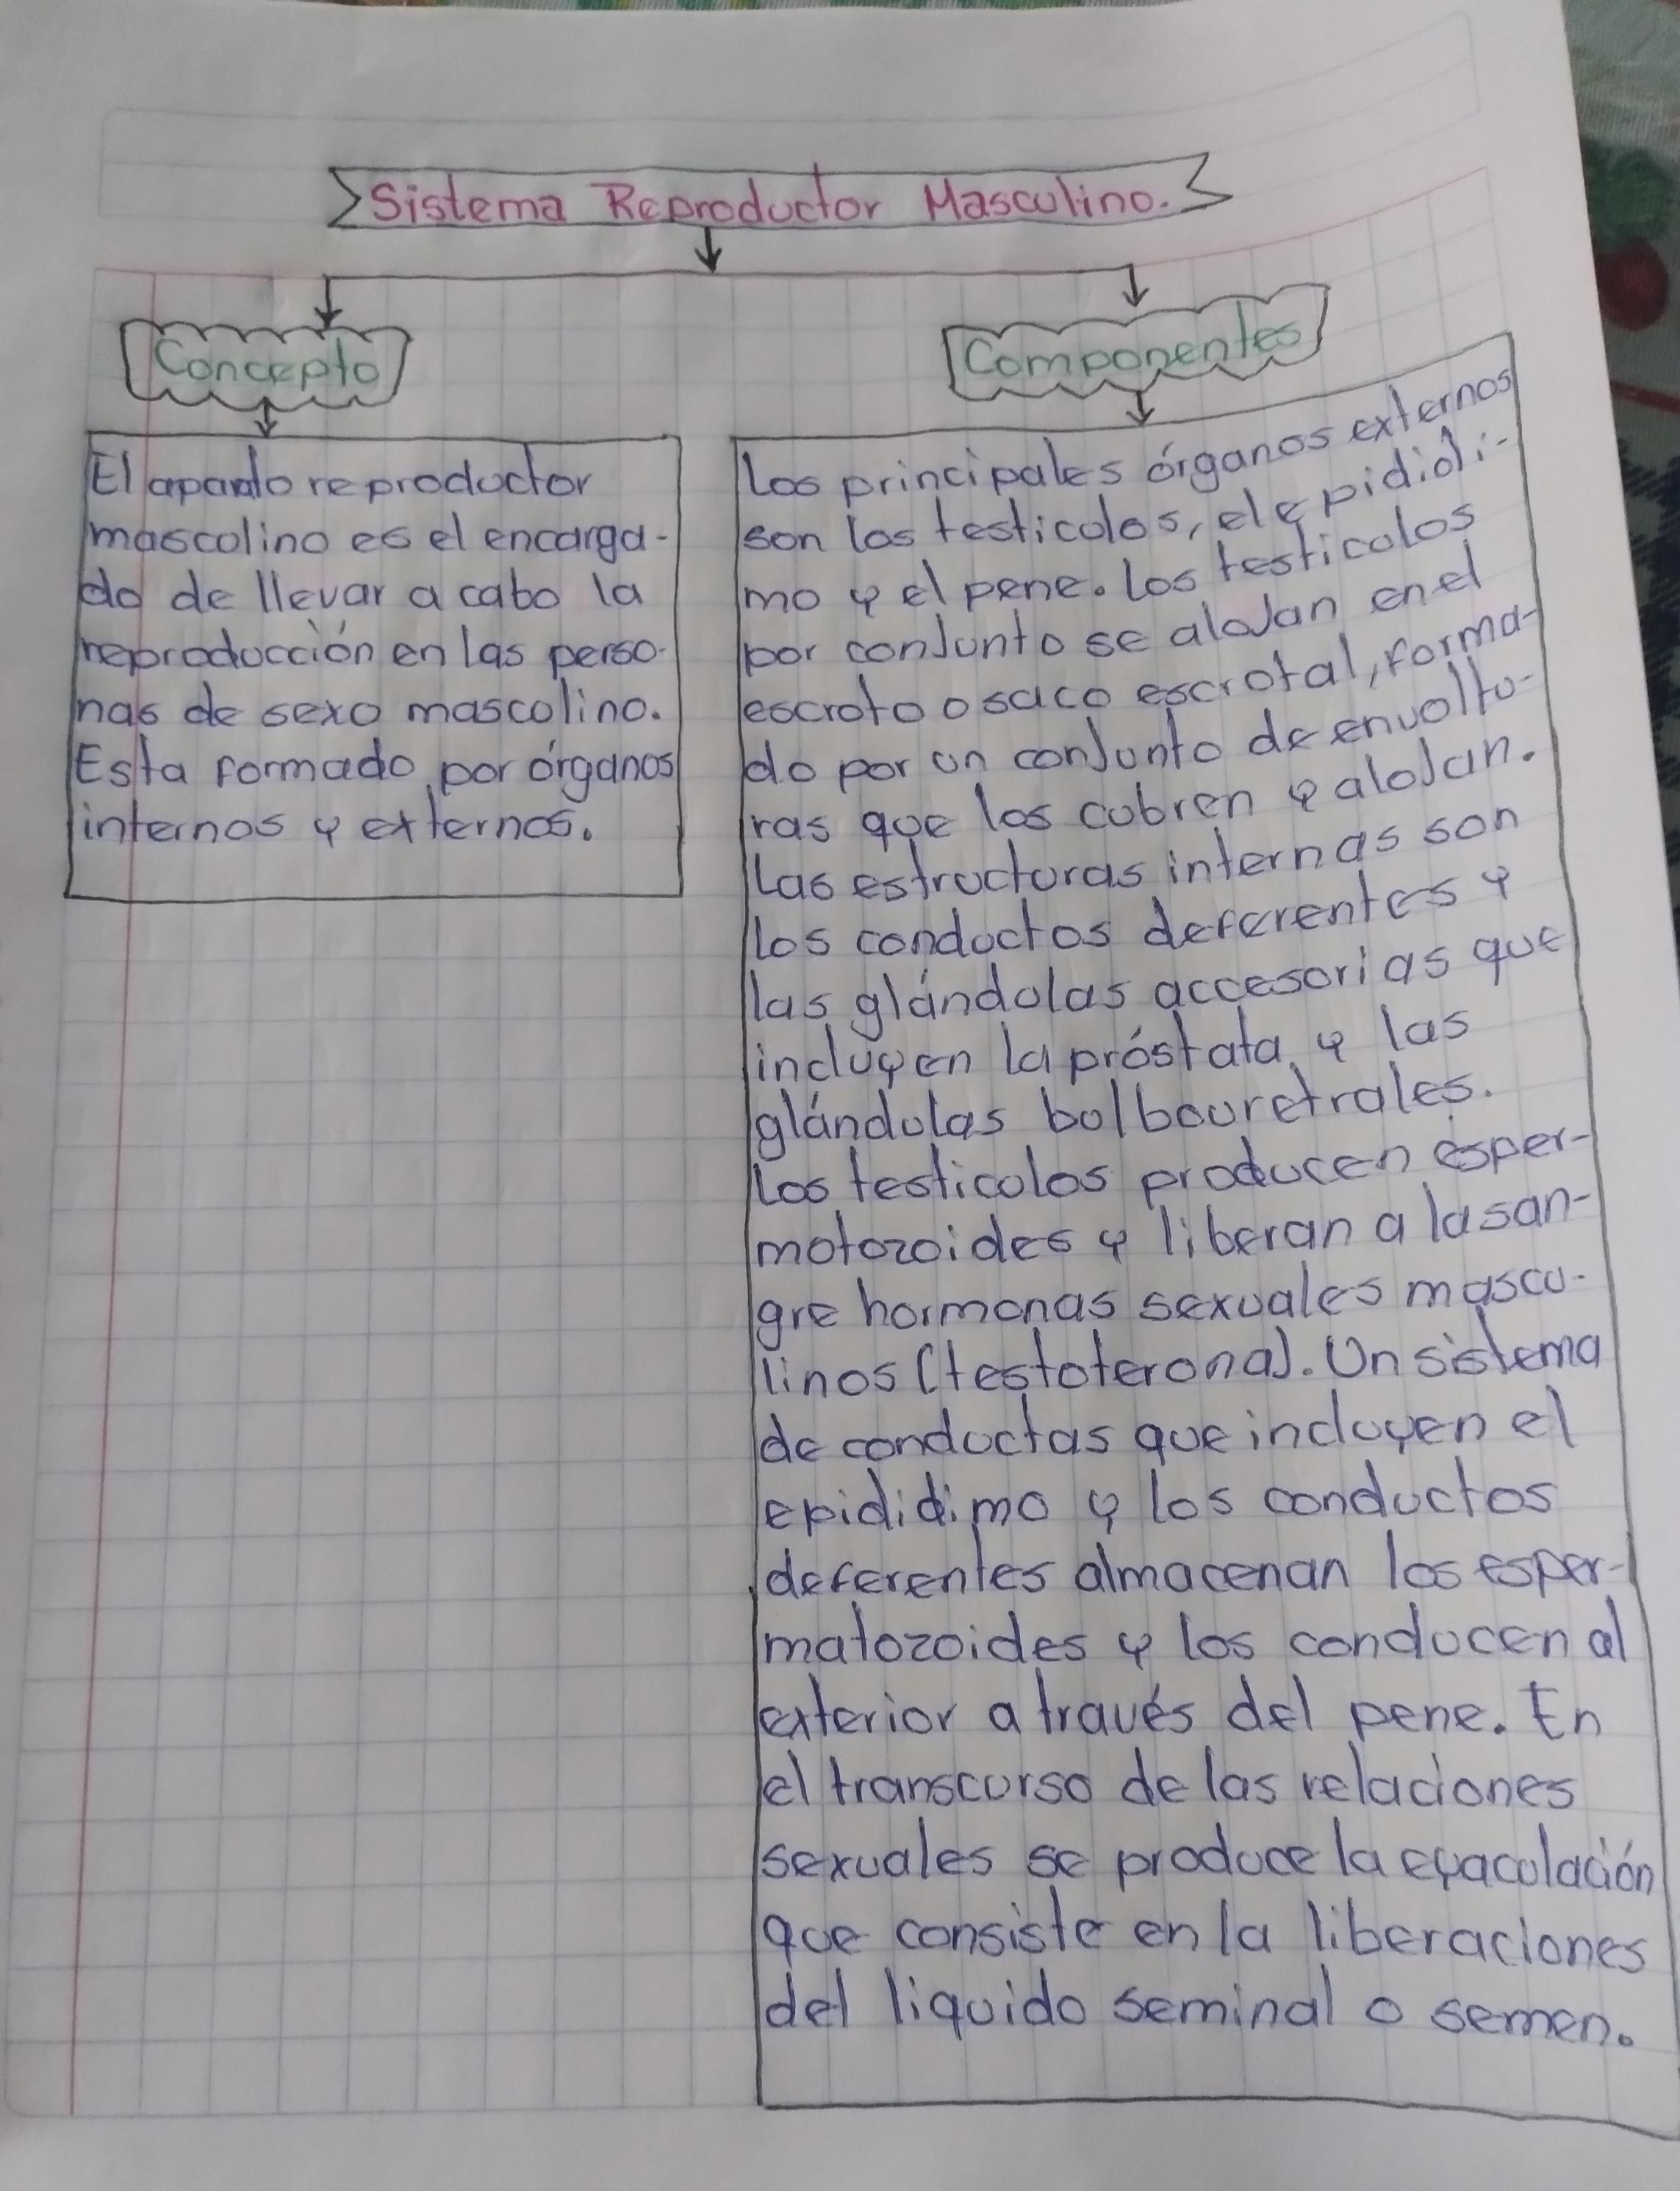 Sistema Reproductor Masculino.
Concepto
El aparato reproductor
mascolino es el encarga-
do de llevar a cabo la
reproducción en las perso-
nas de sexo mascolino.
Esta formado por órganos
internos y externos.
Componentes
Los principales órganos externos
son los testicolos, el epididi-
mo y el pene. Los testicolos
por conJunto se aloJan en el
escroto o saco escrotal, forma-
do por un conJunto de envoltu-
ras que los cubren y aloJan.
Las estructuras internas son
los conductos deferentes y
las glándulas accesorias que
incluyen la próstata y las
glándulas bulbouretrales.
Los testicolos producen esper-
motozoides y liberan a la san-
gre hormonas sexuales mascu-
linos (testoterona). Un sistema
de conductas que incluyen el
epididimo y los conductos
deferentes almacenan los esper-
matozoides y los conducen al
exterior a través del pene. En
el transcurso de las relaciones
sexuales se produce la eyaculación
que consiste en la liberaciones
del liquido seminal o semen.